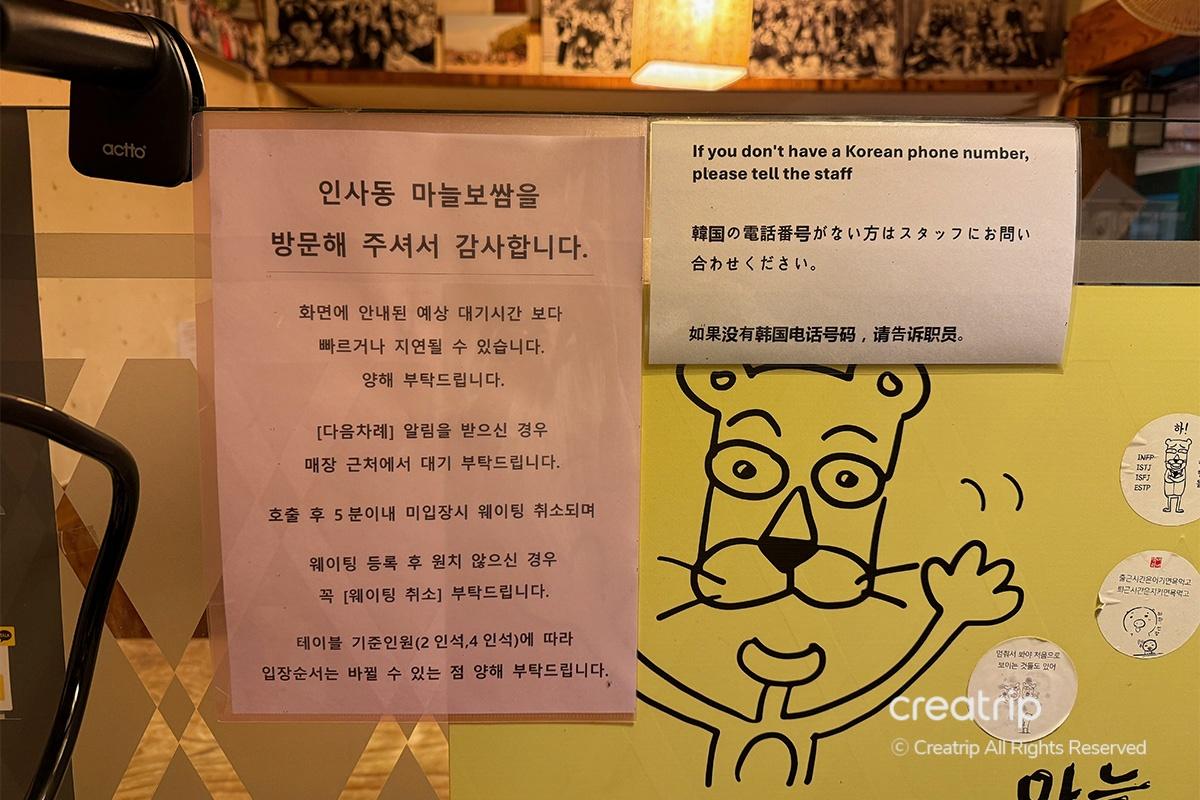 actto
인사동 마늘보쌈을
방문해 주셔서 감사합니다.
화면에 안내된 예상 대기시간 보다
빠르거나 지연될 수 있습니다.
양해 부탁드립니다.
[다음차례] 알림을 받으신 경우
매장 근처에서 대기 부탁드립니다.
호출 후 5분이내 미입장시 웨이팅 취소되며
웨이팅 등록 후 원치 않으신 경우
꼭 [웨이팅 취소] 부탁드립니다.
테이블 기준인원(2인석,4인석)에 따라
입장순서는 바뀔 수 있는 점 양해 부탁드립니다.
If you don't have a Korean phone number,
please tell the staff
韓国の電話番号がない方はスタッフにお問い
合わせください。
如果没有韩国电话号码，请告诉职员。
하!
INFP
ISTJ
ISFJ
ESTP
출근시간은이기면욕먹고
퇴근시간은지키면욕먹고
멈춰서 봐야 처음으로
보이는 것들도 있어
마늘
creatrip
© Creatrip All Rights Reserved